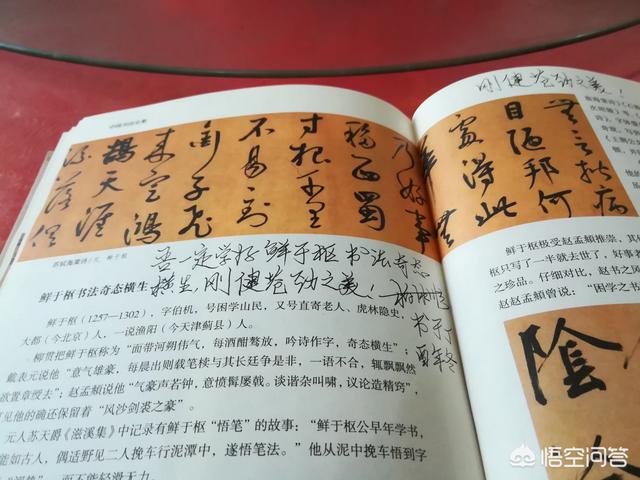 乃好事
移西蜀
寸根千里
不易到
衔子飞
来定鸿
鹄天涯
流落俱
苏轼海棠诗
吾一定学好鲜于枢书法奇态
横生,刚健苍劲之美!
书于
酉年冬
鲜于枢书法奇态横生
鲜于枢(1257—1302),字伯机,号困学山民,又号直寄老人、虎林隐吏,
大都(今北京)人,一说渔阳(今天津蓟县)人。
柳贯把鲜于枢称为“面带河朔伟气,每酒酣骜放,吟诗作字,奇态横生”,
戴表元说他“意气雄豪,每晨出则载笔椟与其长廷争是非,一语不合,辄飘飘然
欲置章绶去”;赵孟頫说他“气豪声若钟,意愤髯屡戟。谈谐杂叫啸,议论造精窍”,
见他的确还保留着“风沙剑裘之豪”。
元人苏天爵《滋溪集》中记录有鲜于枢“悟笔”的故事:“鲜于枢公早年学书,
能如古人,偶适野见二人挽车行泥潭中,遂悟笔法。”他从泥中挽车悟到字
而不能轻滑无力。
刚健苍劲之美!
無言揩病
目陋邦何
處得此
花無
鲜于枢极受赵孟頫推崇,其
只写了一半就去世了,好事者
之珍品。仔细对比,赵
赵孟頫曾说:“困学之书
陰
悟空问答